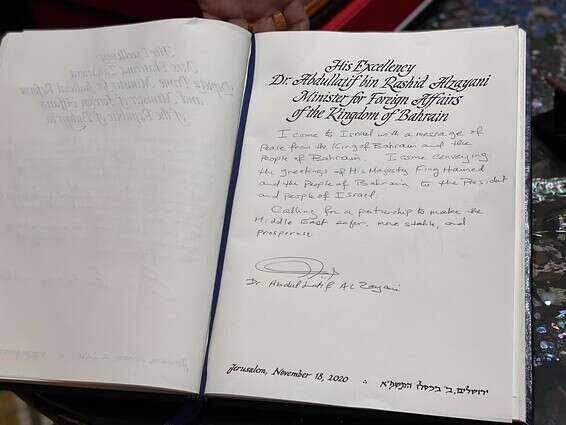 His Excellency
Dr. Abdullatif bin Rashid Alzayani
Minister for Foreign Affairs
of the Kingdom of Bahrain
I come to Israel with a message of
Peace from the King of Bahrain and the
People of Bahrain. I come conveying
the greetings of His Majesty King Hamed
and the People of Bahrain to the President
and people of Israel
Calling for a partnership to make the
Middle East safer, more stable, and
prosperous
Dr. Abdullatif AlZayani
Jerusalem, November 18, 2020
ירושלים, ב׳ בכסלו התשפ״א